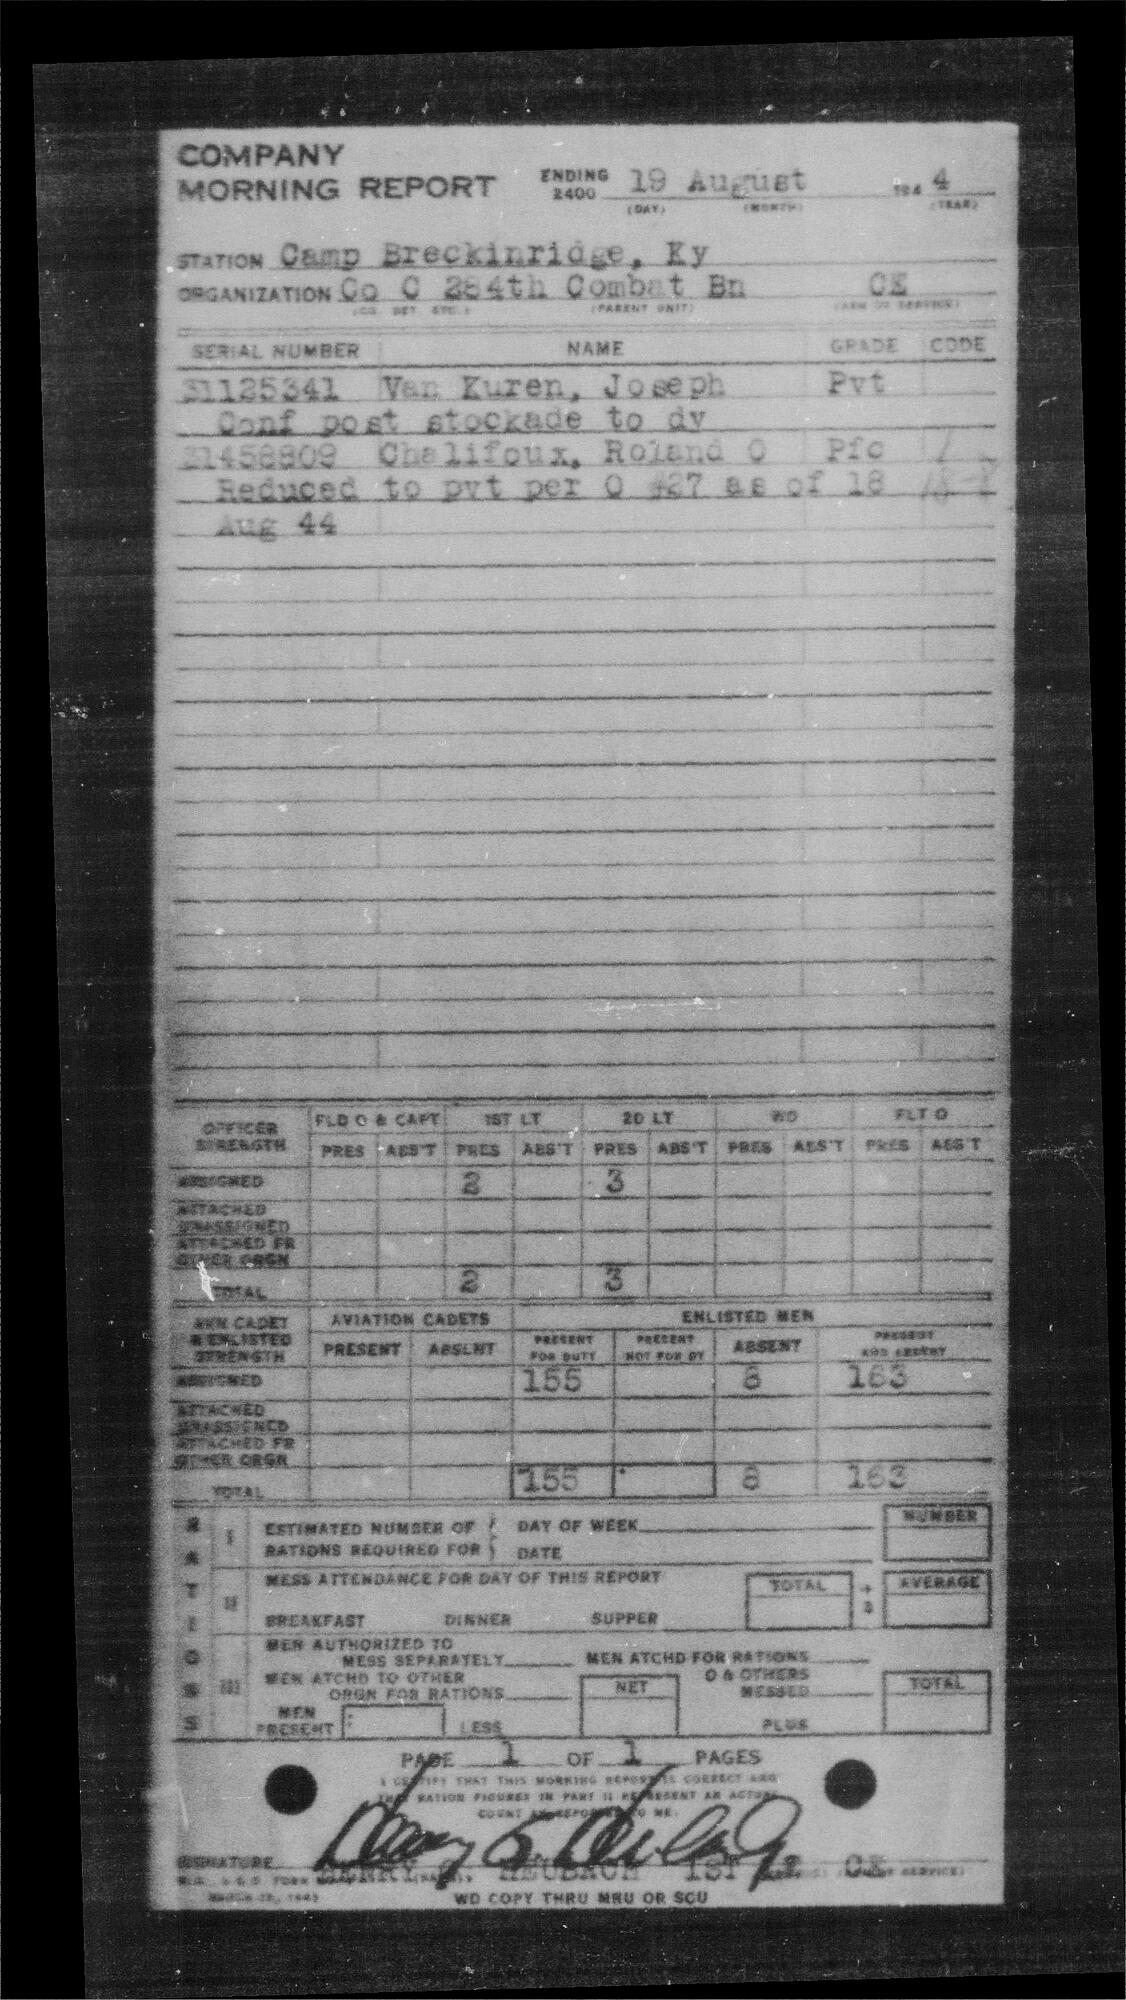 COMPANY
MORNING REPORT ENDING 2400 19 August 194 4
(DAY) (MONTH) (YEAR)
STATION Camp Breckinridge, Ky
ORGANIZATION Co C 284th Combat Bn CE
(CO. DET. ETC.) (PARENT UNIT) (ARM OR SERVICE)
SERIAL NUMBER NAME GRADE CODE
31125341 Van Kuren, Joseph Pvt
Conf post stockade to dy
31458809 Chalifoux, Roland O Pfc
Reduced to pvt per O #27 as of 18
Aug 44
OFFICER STRENGTH FLD O & CAPT 1ST LT 2D LT WO FLT O
PRES ABS'T PRES ABS'T PRES ABS'T PRES ABS'T PRES ABS'T
ASSIGNED 2 3
ATTACHED UNASSIGNED
ATTACHED FR OTHER ORGN
TOTAL 2 3
AVN CADET & ENLISTED STRENGTH AVIATION CADETS ENLISTED MEN
PRESENT ABSENT PRESENT FOR DUTY PRESENT NOT FOR DY ABSENT PRESENT AND ABSENT
ASSIGNED 155 8 163
ATTACHED UNASSIGNED
ATTACHED FR OTHER ORGN
TOTAL 155 8 163
RATIONS
I ESTIMATED NUMBER OF RATIONS REQUIRED FOR DAY OF WEEK NUMBER
DATE
II MESS ATTENDANCE FOR DAY OF THIS REPORT TOTAL ÷ 3 AVERAGE
BREAKFAST DINNER SUPPER
III MEN AUTHORIZED TO MESS SEPARATELY MEN ATCHD FOR RATIONS
MEN ATCHD TO OTHER ORGN FOR RATIONS NET O & OTHERS MESSED TOTAL
MEN PRESENT LESS PLUS
PAGE 1 OF 1 PAGES
I CERTIFY THAT THIS MORNING REPORT IS CORRECT AND
THAT RATION FIGURES IN PART II REPRESENT AN ACTUAL
COUNT AS REPORTED TO ME.
SIGNATURE HEUBACH 1ST LT CE
WD COPY THRU MRU OR SCU